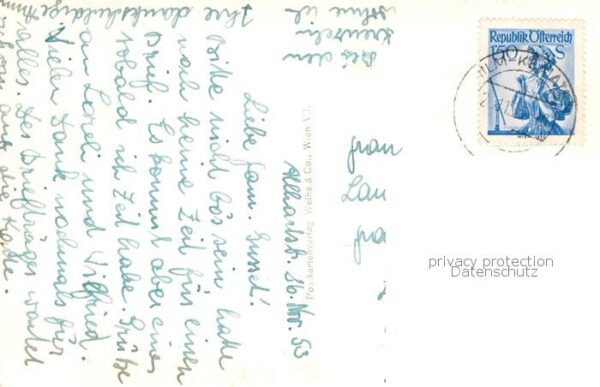 Allhartst. 16. Nov. 53
Liebe Fam. Gussel!
Bitte nicht bös sein habe
noch keine Zeit für einen
Brief. Es kommt aber einer
sobald ich Zeit habe. Grüße
an Loreli und Wilfried.
Vielen Dank nochmals für
alles. Der Briefträger wartet
schon auf die Karte.
Ihre
bei den
Postkartenverlag & Co., Wien VI.
Republik Österreich
1'50 S
privacy protection
Datenschutz